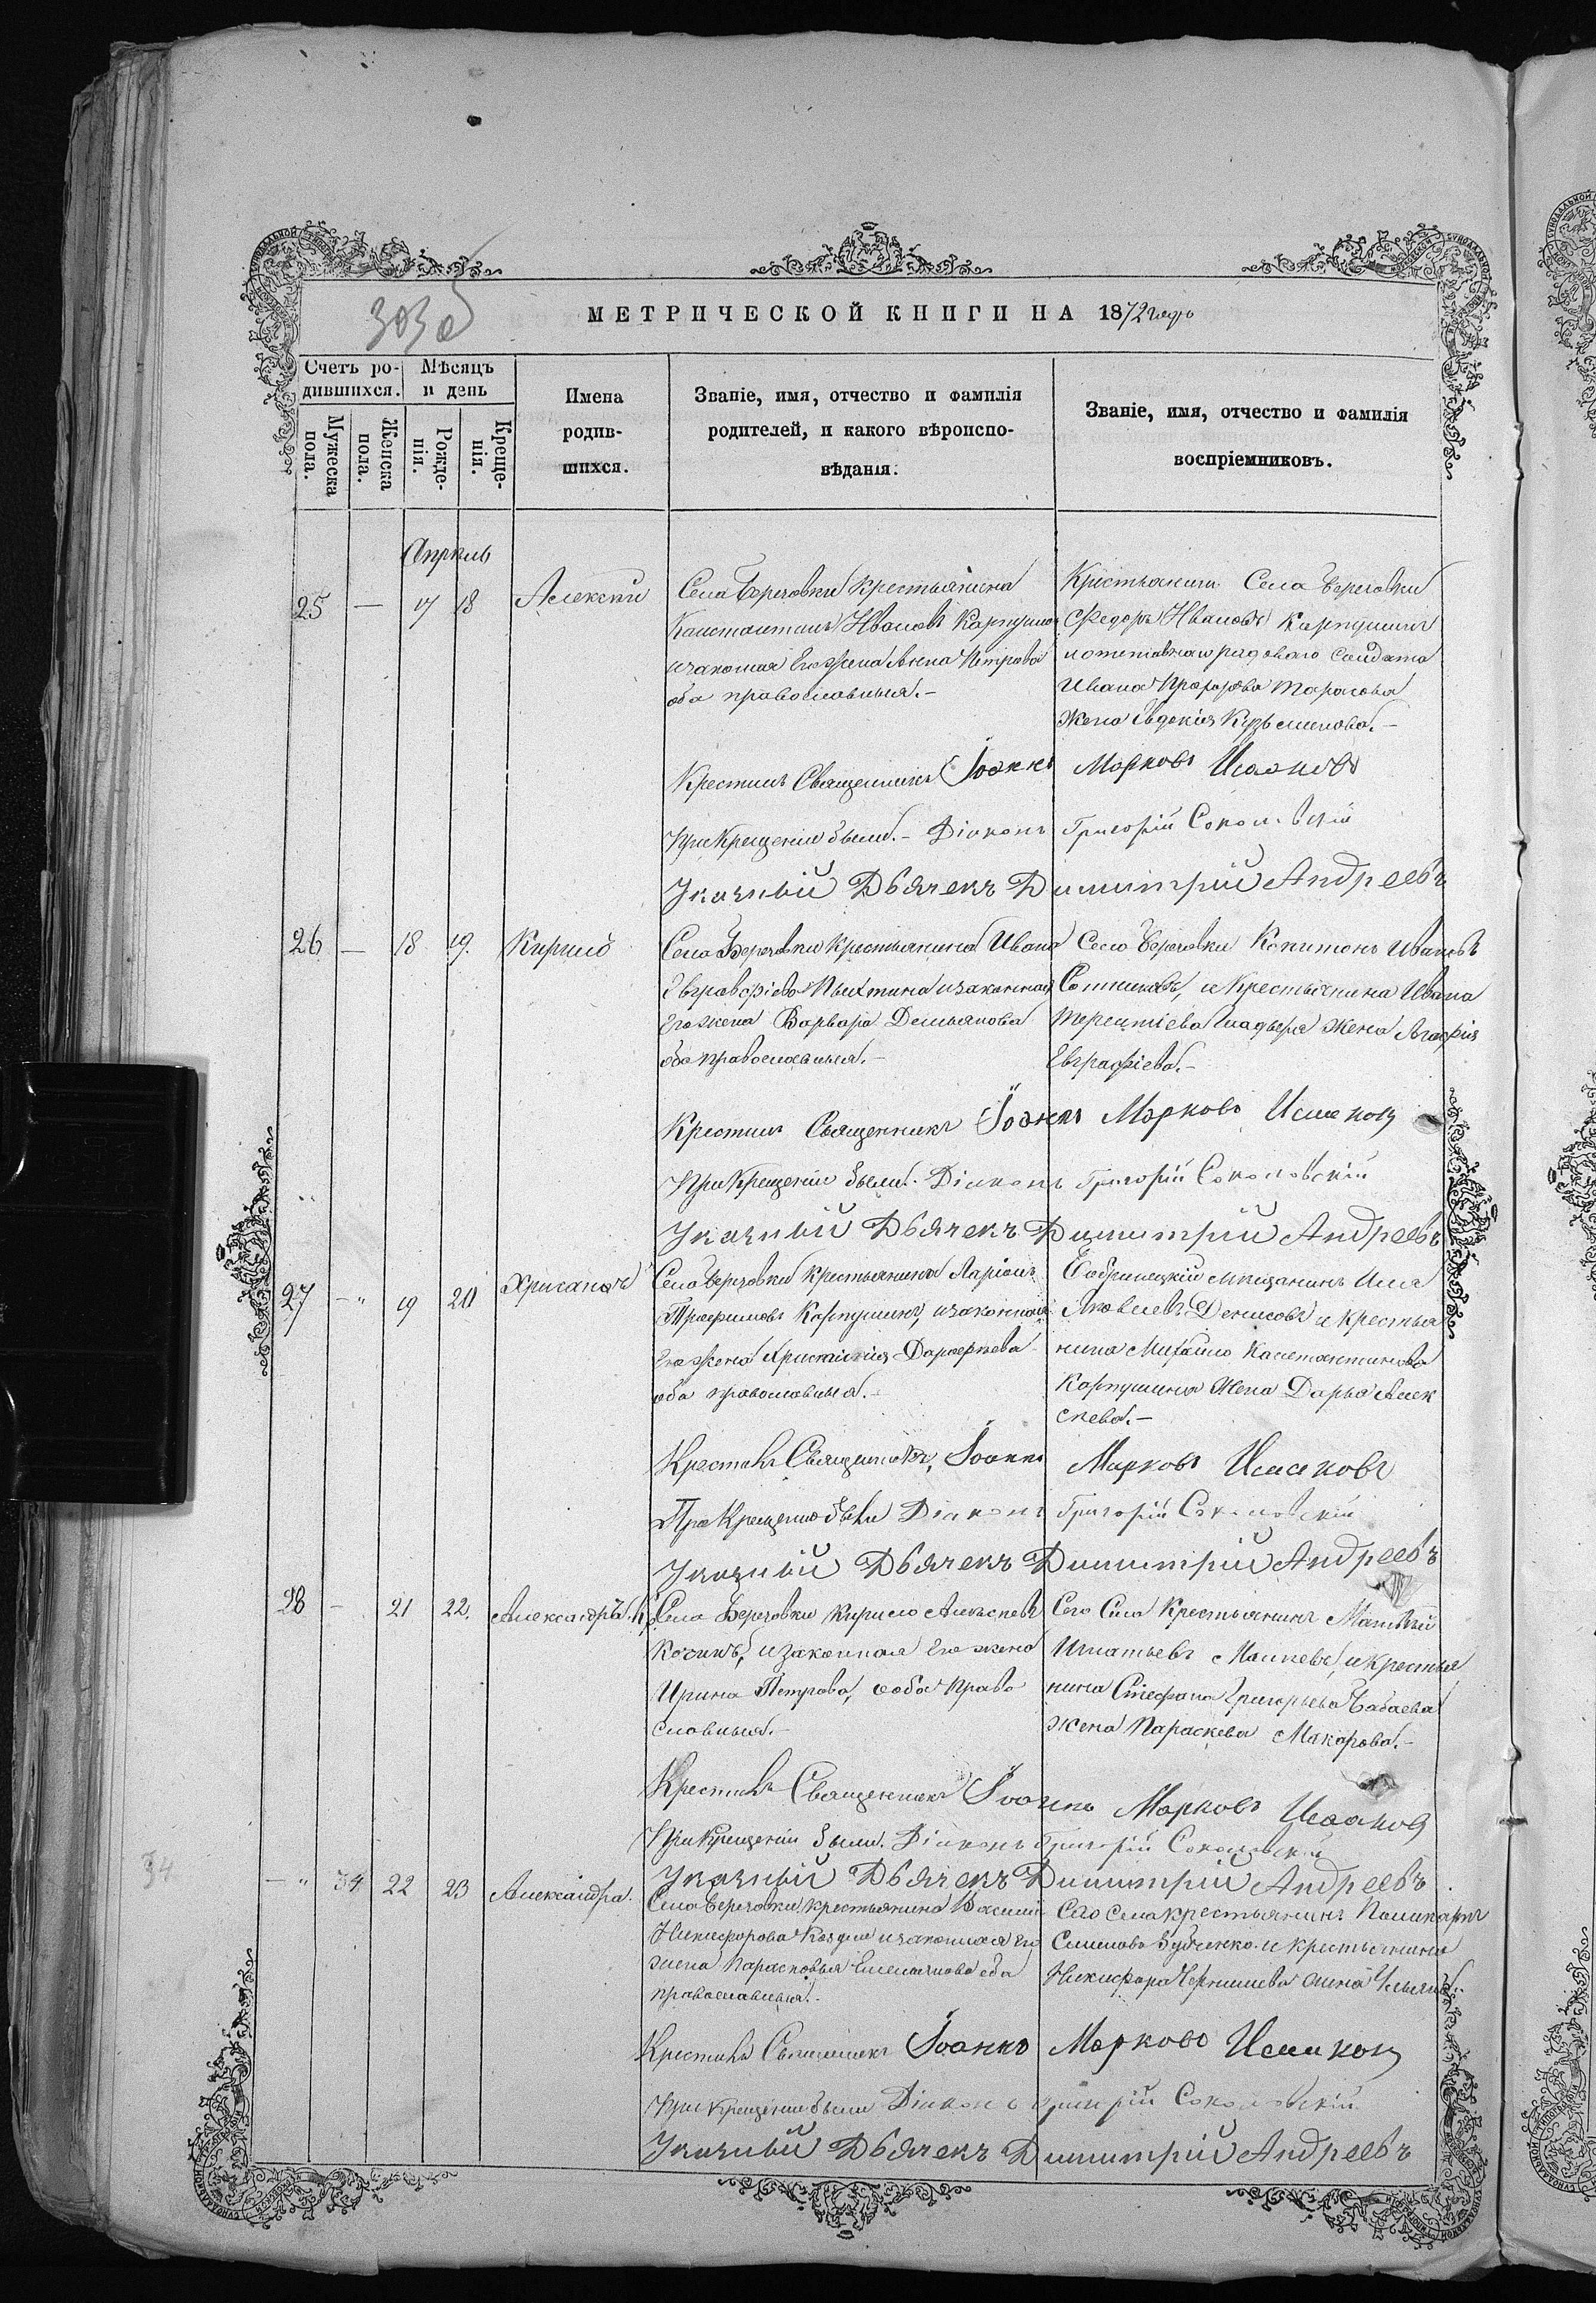 303 об
МЕТРИЧЕСКОЙ КНИГИ НА 1872 годъ
Счетъ ро-
дившихся.
Мѣсяцъ
и день
Мужеска
пола.
Женска
пола.
Рожде-
нія.
Креще-
нія.
Имена
родив-
шихся.
Званіе, имя, отчество и фамилія
родителей, и какого вѣроиспо-
вѣданія.
Званіе, имя, отчество и фамилія
воспріемниковъ.
Апрѣль
25 — 17 18 Алексѣй
Села Березовки крестьянина
Константинъ Ивановъ Карпушинъ
и законная его жена Анна Петрова
оба православныя.—
Крестьянинъ Села Березовки
Федоръ Ивановъ Карпушинъ
и отставнаго рядоваго солдата
Ивана Тарасова
жена Евдокія Кузьминова.—
Крестилъ Священникъ Іоаннъ Марковъ Исаковъ
При Крещеніи были.— Діаконъ Григорій Соколовскій
Указный Дьячекъ Димитрій Андреевъ
26 — 18 19. Кирилъ
Села Березовки крестьянина Ивана
Евграфіева Пыхтина и законная
его жена Варвара Демьянова
оба православныя.—
Села Березовки Капитонъ Ивановъ
Сотниковъ, и крестьянина Ивана
Терентіева жена Агафія
Евграфіева.—
Крестилъ Священникъ Іоаннъ Марковъ Исаковъ
При Крещеніи были. Діаконъ Григорій Соколовскій
Указный Дьячекъ Димитрій Андреевъ
27 — „ 19 20 Хрисанѳъ
Села Березовки крестьянина Ларіонъ
Трофимовъ Карпушинъ, и законная
его жена Дорофеева
оба православныя.—
Бобринецкій мѣщанинъ Илья
Яковлевъ Денисовъ и крестья
нина Михайло Константинова
Карпушина жена Дарья Алек
сѣева.—
Крестилъ Священникъ, Іоаннъ Марковъ Исаковъ
При Крещеніи были Діаконъ Григорій Соколовскій
Указный Дьячекъ Димитрій Андреевъ
28 — 21 22. Александръ
Села Березовки Кирило Алексѣевъ
и законная его жена
Ирина Петрова, оба право
славныя.—
Сего Села Крестьянинъ Матвѣй
Игнатьевъ и крестья
нина Стефана Григорьева Бабаева
жена Параскева Макарова.—
Крестилъ Священникъ Іоаннъ Марковъ Исаковъ
При Крещеніи были. Діаконъ Григорій Соколовскій
Указный Дьячекъ Димитрій Андреевъ
34
— „ 34 22 23 Александра.
Села Березовки крестьянина Василій
Никифорова и законная его
жена Парасковья Емельянова оба
православныя.—
Сего села крестьянинъ Поликарпъ
Семеновъ и крестьянина
Никифора Чернишева
Крестилъ Священникъ Іоаннъ Марковъ Исаковъ
При крещеніи были Діаконъ Григорій Соколовскій
Указный Дьячекъ Димитрій Андреевъ